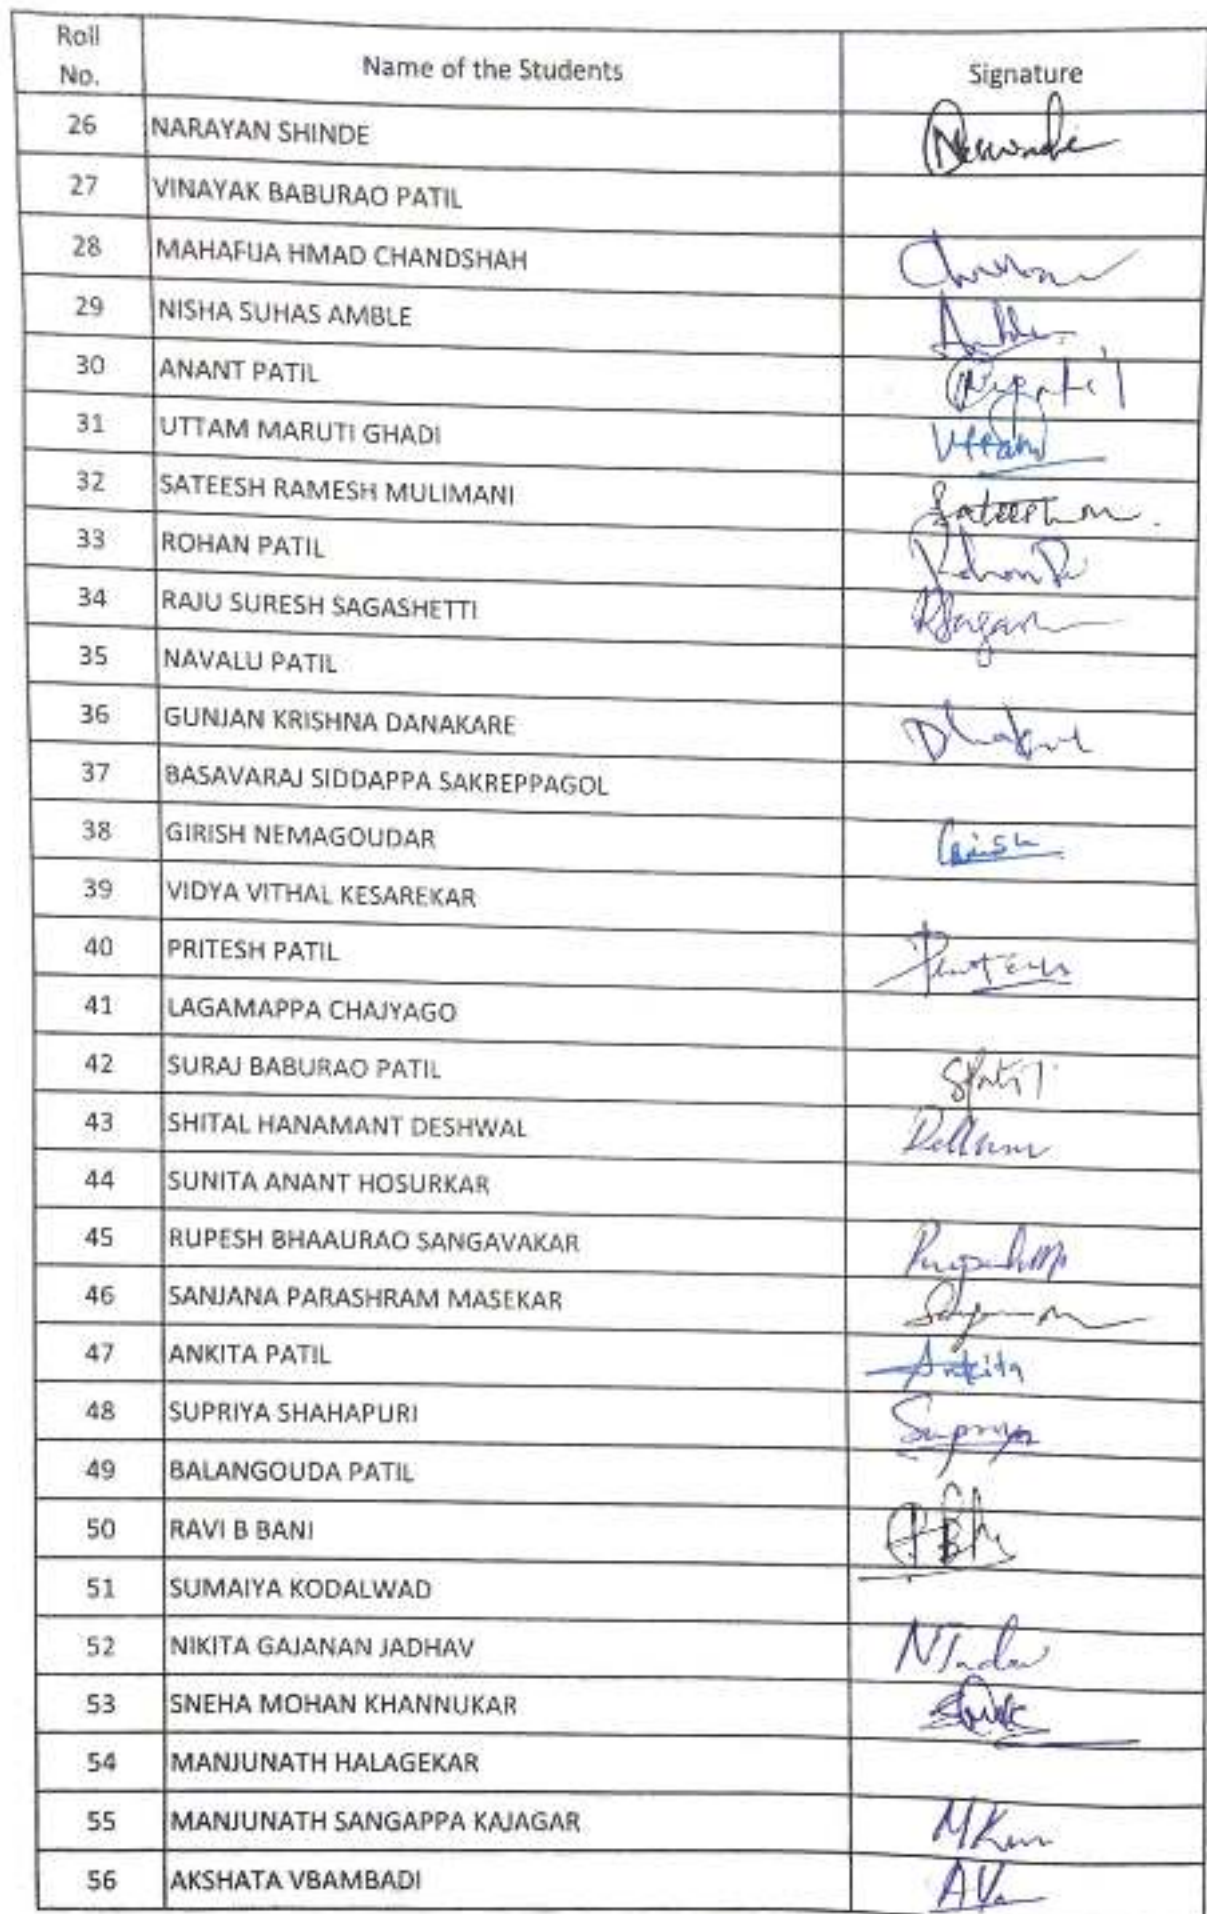 Roll No. Name of the Students Signature
26 NARAYAN SHINDE
27 VINAYAK BABURAO PATIL
28 MAHAFIJA HMAD CHANDSHAH
29 NISHA SUHAS AMBLE
30 ANANT PATIL
31 UTTAM MARUTI GHADI
32 SATEESH RAMESH MULIMANI Sateesh m.
33 ROHAN PATIL
34 RAJU SURESH SAGASHETTI
35 NAVALU PATIL
36 GUNJAN KRISHNA DANAKARE
37 BASAVARAJ SIDDAPPA SAKREPPAGOL
38 GIRISH NEMAGOUDAR Girish
39 VIDYA VITHAL KESAREKAR
40 PRITESH PATIL
41 LAGAMAPPA CHAJYAGO
42 SURAJ BABURAO PATIL
43 SHITAL HANAMANT DESHWAL
44 SUNITA ANANT HOSURKAR
45 RUPESH BHAAURAO SANGAVAKAR
46 SANJANA PARASHRAM MASEKAR
47 ANKITA PATIL Ankita
48 SUPRIYA SHAHAPURI Supriya
49 BALANGOUDA PATIL
50 RAVI B BANI
51 SUMAIYA KODALWAD
52 NIKITA GAJANAN JADHAV
53 SNEHA MOHAN KHANNUKAR
54 MANJUNATH HALAGEKAR
55 MANJUNATH SANGAPPA KAJAGAR
56 AKSHATA VBAMBADI